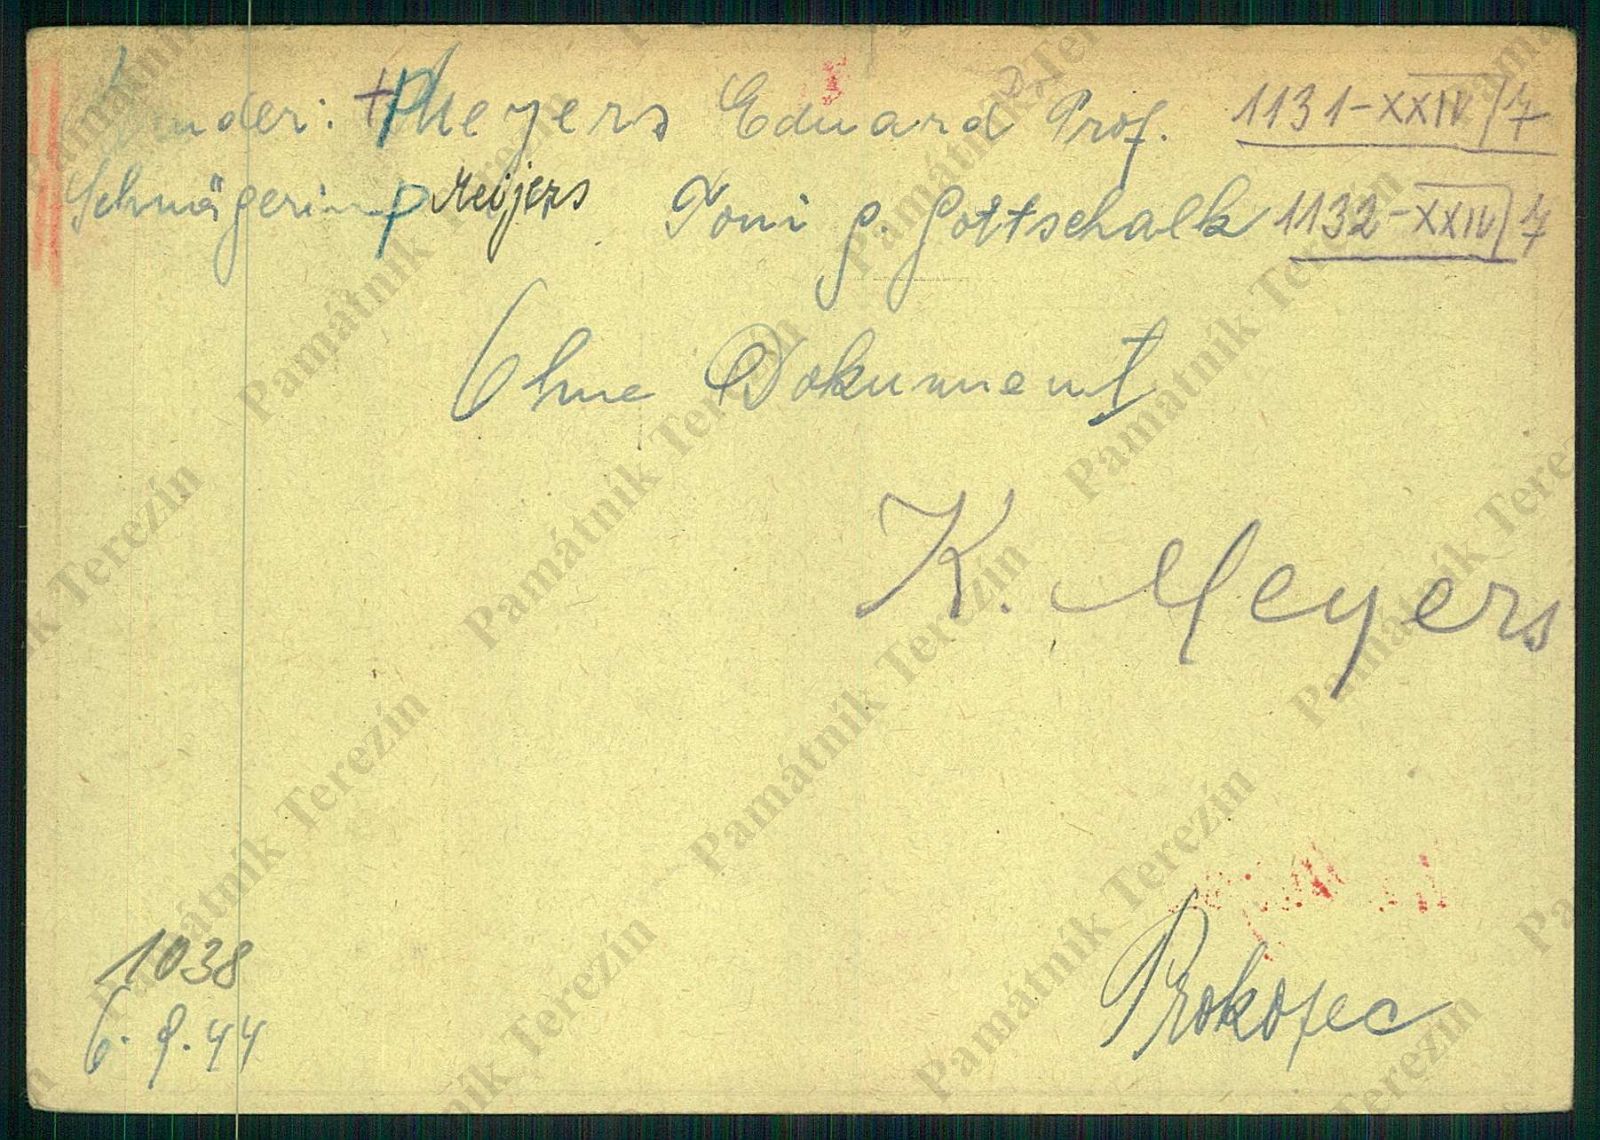 Bruder: + p Meyers Eduard Prof. 1131-XXIV/7
Schwägerin p Meijers Toni g. Gottschalk 1132-XXIV/7
Ohne Dokument
K. Meyers
1038
6. 9. 44
Prokopec
Památník Terezín